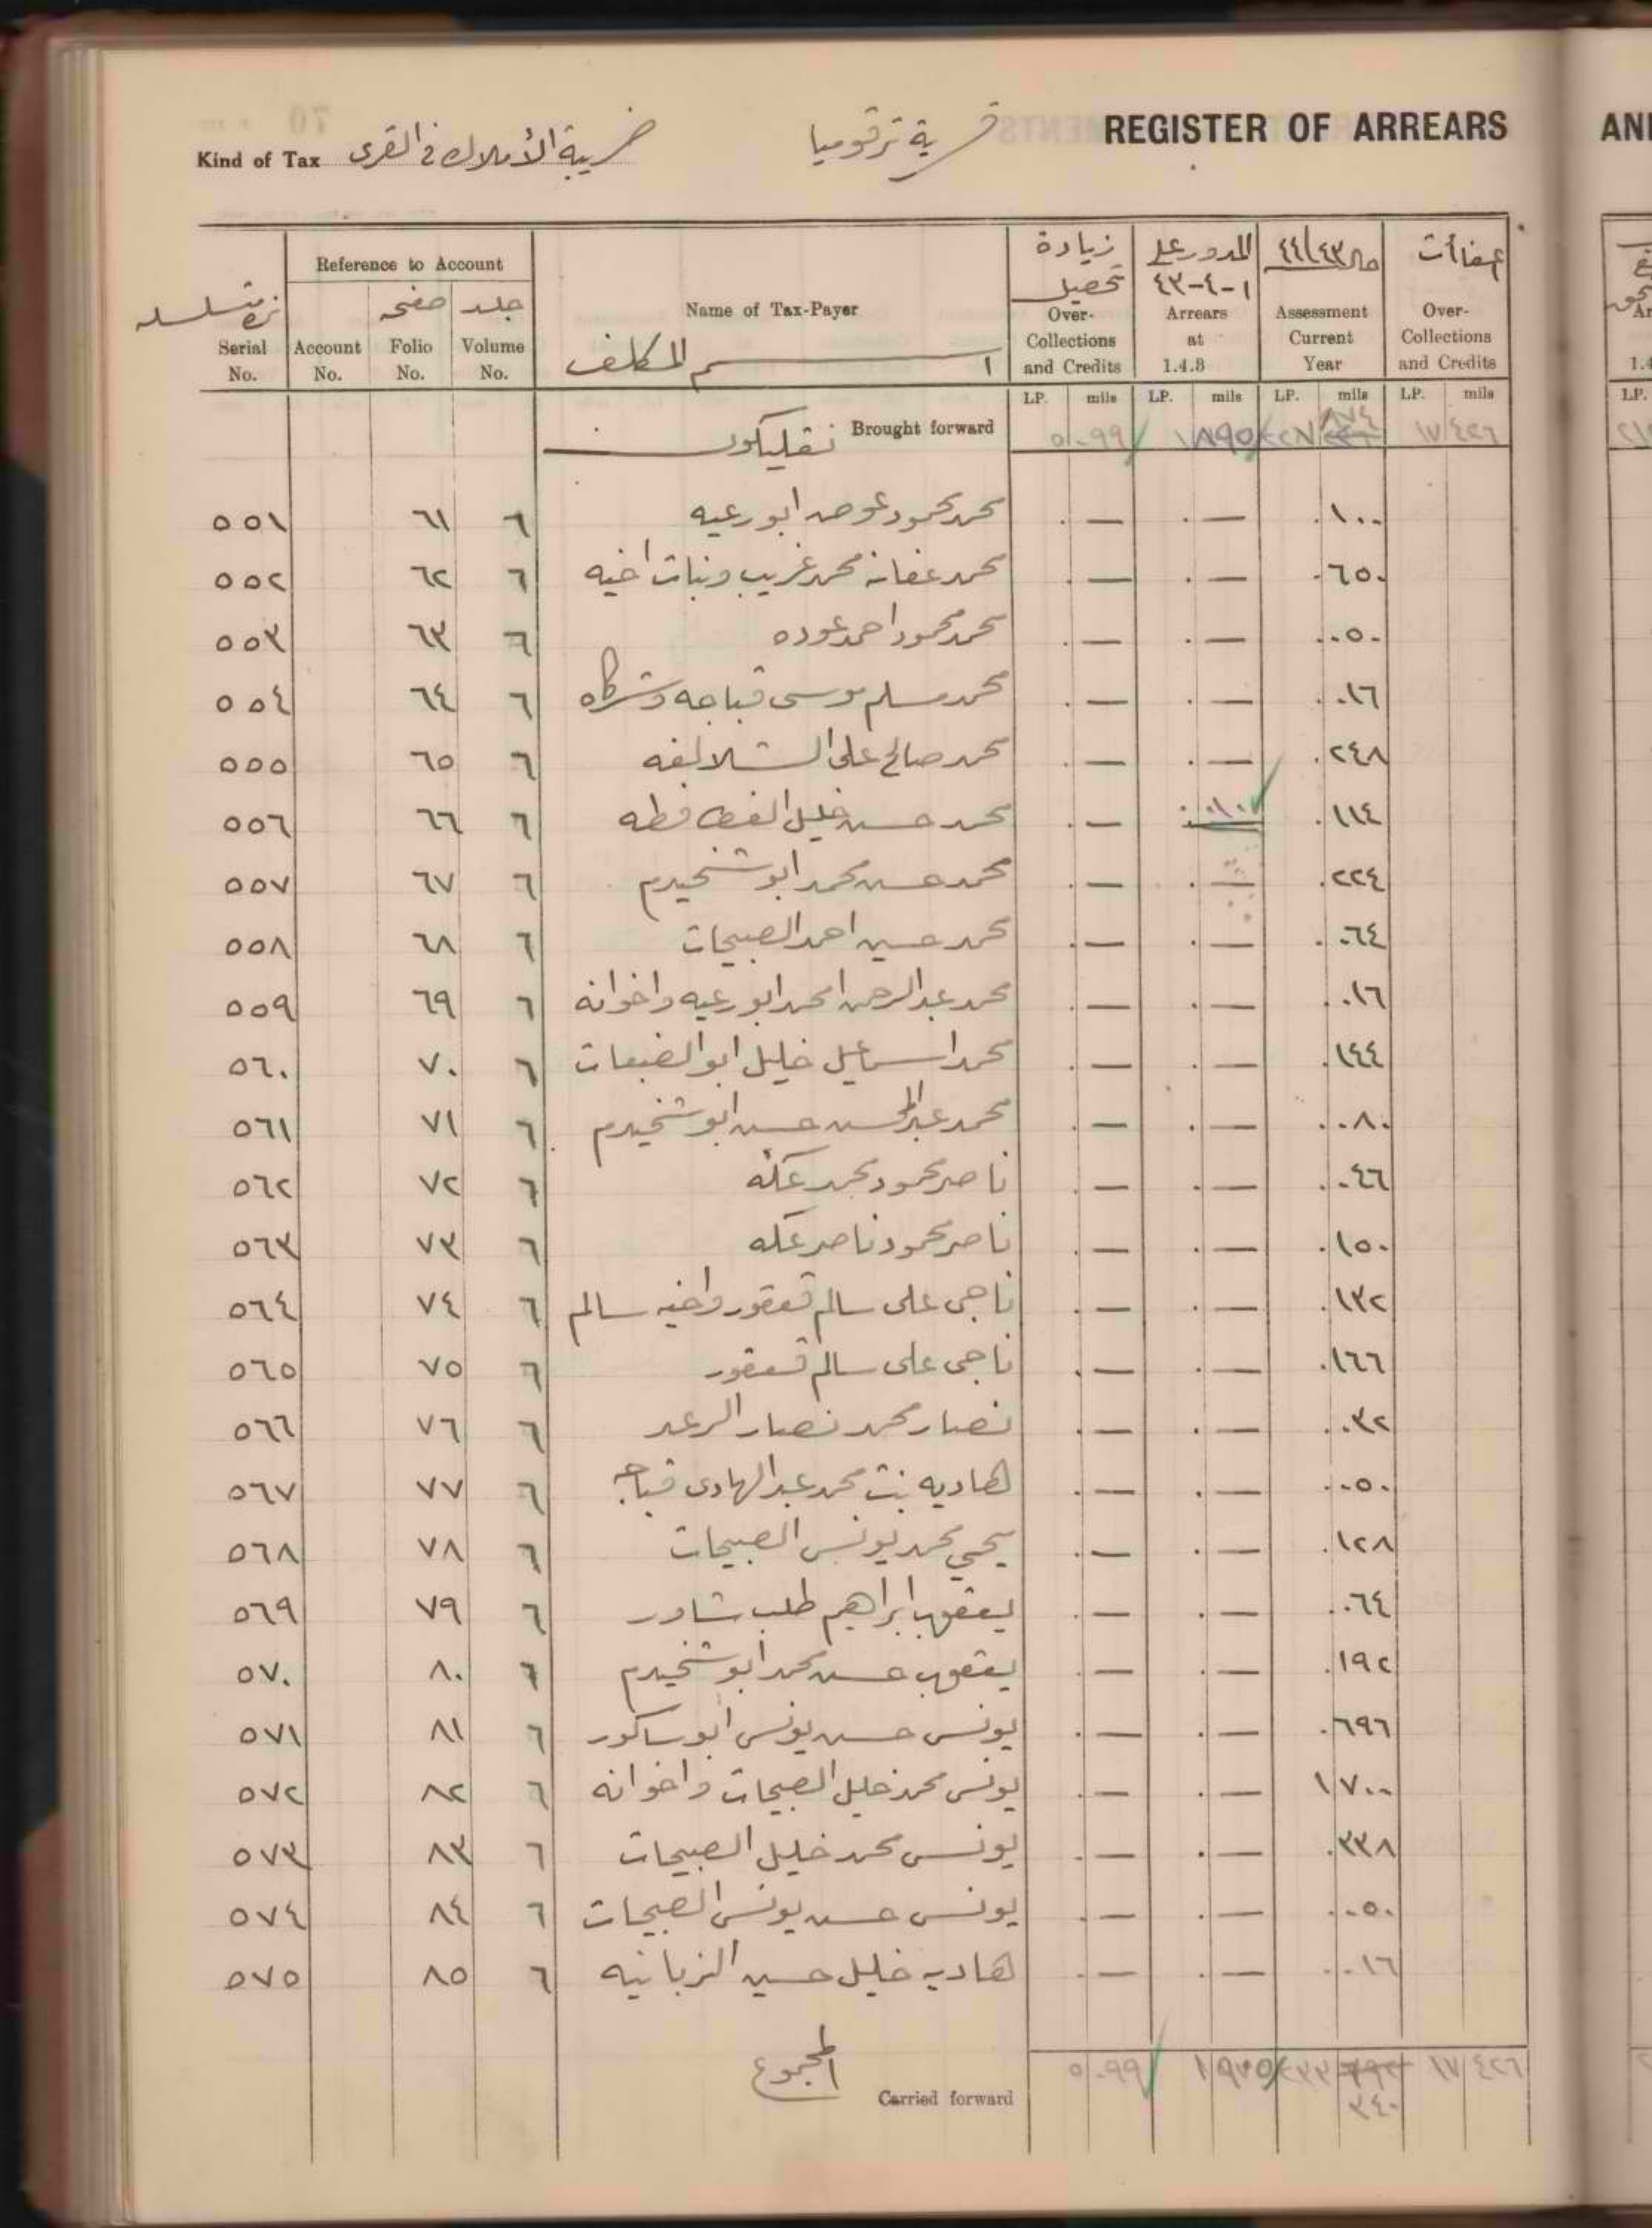 REGISTER OF ARREARS
قرية ترقوميا
Kind of Tax ضريبة الأملاك في القرى
Serial No.
Reference to Account
Account No.
صفحه Folio No.
جلد Volume No.
Name of Tax-Payer
اسم المكلف
زيادة تحصيل Over-Collections and Credits
المدور على ١-٤-٤٣ Arrears at 1.4.3
مال ٤٤/٤٣ Assessment Current Year
Over-Collections and Credits
LP. mils LP. mils LP. mils LP. mils
Brought forward ٥ ٠٩٩ ١ ٨٩٥ ٢٢٨ ٨٧٤ ١٧ ٤٢٦
٥٥١ ٦١ ٦ محمد محمود عوض ابو رعيه . — . — . ١٠٠
٥٥٢ ٦٢ ٦ محمد عفانه محمد غريب وبنات اخيه . — . — . ٦٥٠
٥٥٣ ٦٣ ٦ محمد محمود احمد عوده . — . — . ٠٥٠
٥٥٤ ٦٤ ٦ محمد مسلم موسى قباجه وشركاه . — . — . ٠١٦
٥٥٥ ٦٥ ٦ محمد صالح على الشلالفه . — . — . ٢٤٨
٥٥٦ ٦٦ ٦ محمد حسن خليل الفطافطه . — . ١١٤
٥٥٧ ٦٧ ٦ محمد حسن محمد ابو شخيدم . — . — . ٢٢٤
٥٥٨ ٦٨ ٦ محمد حسين احمد الصبيحات . — . — . ٠٦٤
٥٥٩ ٦٩ ٦ محمد عبد الرحمن امحمد ابو رعيه واخوانه . — . — . ٠١٦
٥٦٠ ٧٠ ٦ محمد اسماعيل خليل ابو الضبعات . — . — . ١٤٤
٥٦١ ٧١ ٦ محمد عبد المحسن حسن ابو شخيدم . — . — . ٠٨٠
٥٦٢ ٧٢ ٦ ناصر محمود محمد عكه . — . — . ٠٤٦
٥٦٣ ٧٣ ٦ ناصر محمود ناصر عكه . — . — . ١٥٠
٥٦٤ ٧٤ ٦ ناجى على سالم قعقور واخيه سالم . — . — . ١٣٢
٥٦٥ ٧٥ ٦ ناجى على سالم قعقور . — . — . ١٦٦
٥٦٦ ٧٦ ٦ نصار محمد نصار الرعد . — . — . ٠٣٢
٥٦٧ ٧٧ ٦ هاديه بنت محمد عبد الهادى قباجه . — . — . ٠٥٠
٥٦٨ ٧٨ ٦ يحيى محمد يونس الصبيحات . — . — . ١٢٨
٥٦٩ ٧٩ ٦ يعقوب ابراهيم طلب شاور . — . — . ٠٦٤
٥٧٠ ٨٠ ٦ يعقوب حسن محمد ابو شخيدم . — . — . ١٩٢
٥٧١ ٨١ ٦ يونس حسن يونس ابو ساكور . — . — . ٦٩٦
٥٧٢ ٨٢ ٦ يونس محمد خليل الصبيحات واخوانه . — . — ١ ٧٠٠
٥٧٣ ٨٣ ٦ يونس محمد خليل الصبيحات . — . — . ٣٣٨
٥٧٤ ٨٤ ٦ يونس حسن يونس الصبيحات . — . — . ٠٥٠
٥٧٥ ٨٥ ٦ هاديه خليل حسين الزبانيه . — . — . ٠١٦
المجموع
Carried forward ٥ ٠٩٩ ٢٣٣ ١٧ ٤٢٦
٣٤٠